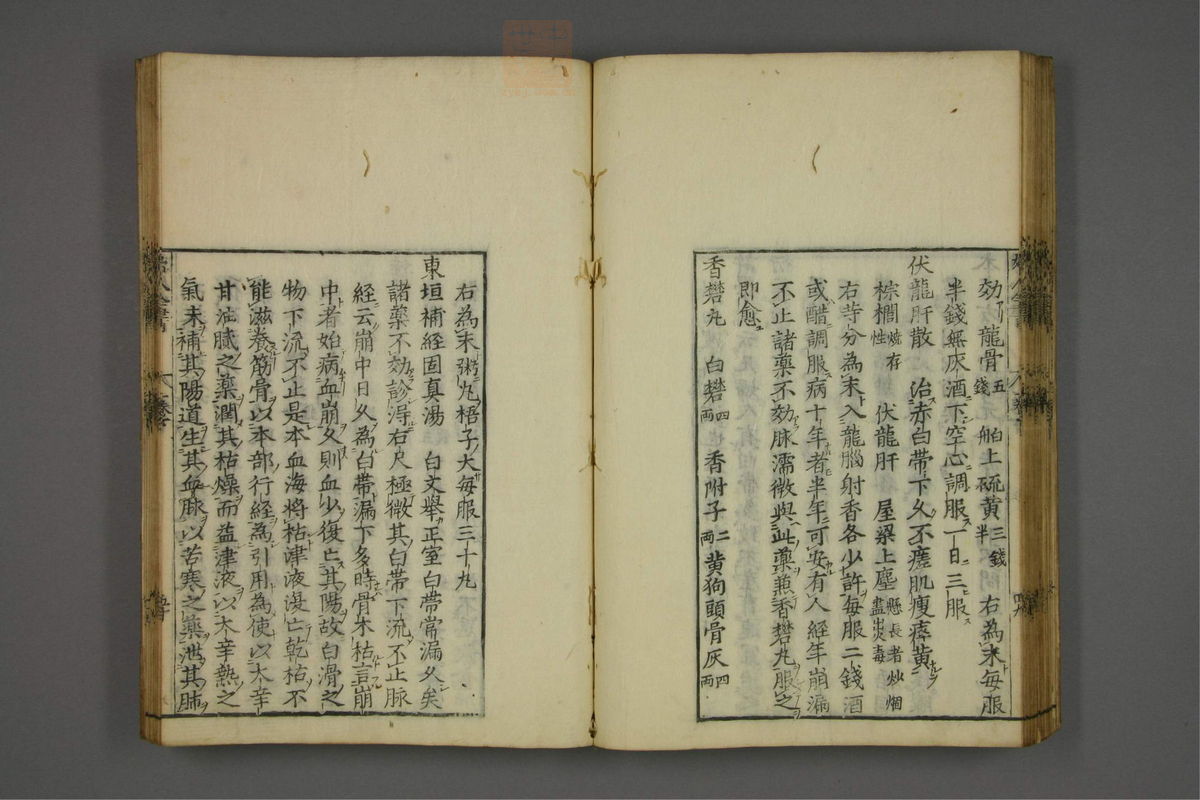 効龍骨五錢舶上硫黄三錢半右為末毎服
半錢無灰酒下空心調服一日三服
伏龍肝散 治赤白帶下久不瘥肌瘦痿黄
棕櫚燒存性 伏龍肝 屋梁上塵懸長者炒烟盡出炎毒
右等分為末入龍腦射香各少許毎服二錢酒
或醋調服病十年者半年可安有人經年崩漏
不止諸藥不効脉濡微與此藥兼香礬丸服之
即愈
香礬丸 白礬四兩 香附子二兩 黄狗頭骨灰四兩
右為末粥丸梧子大毎服三十丸
東垣補經固真湯 白文舉正室白帶常漏久矣
諸藥不効診得右尺極微其白帶下流不止脉
経云崩中日久為白帶漏下多時骨木枯言崩
中者始病血崩久則血少復亡其陽故白滑之
物下流不止是本血海将枯津液復亡乾枯不
能滋養筋骨以本部行経為引用為使以大辛
甘油膩之藥潤其枯燥而益津液以大辛熱之
氣味補其陽道生其血脉以苦寒之藥泄其肺